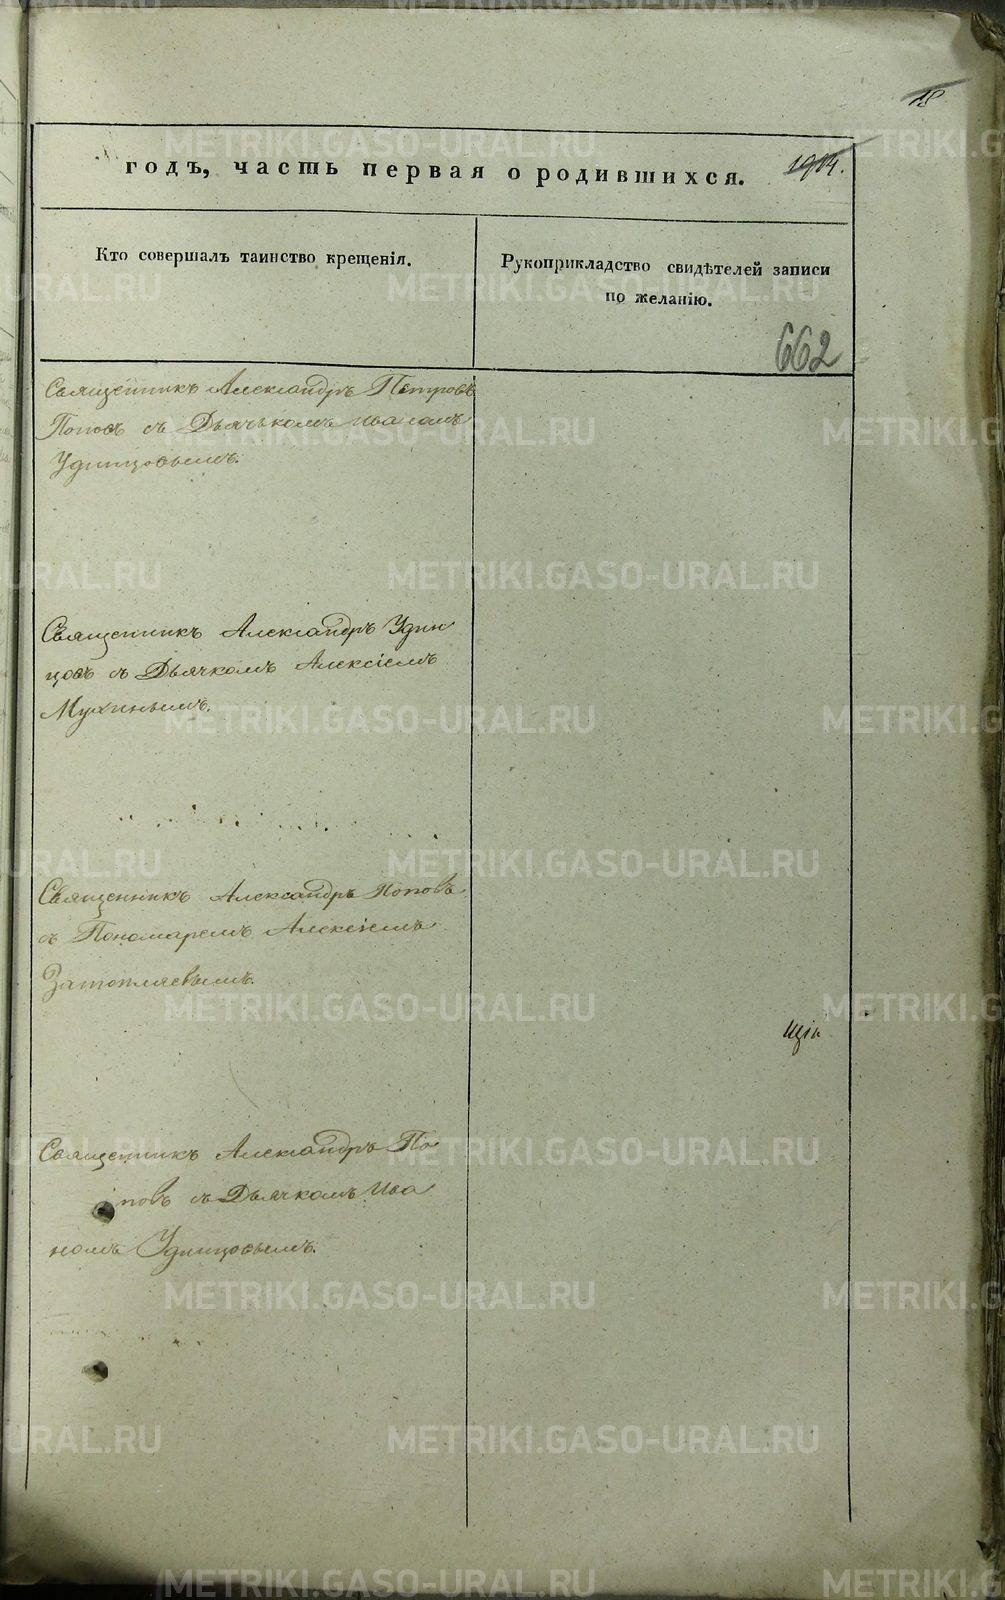 18
годъ, часть первая о родившихся. 1904.
Кто совершалъ таинство крещенія.
Рукоприкладство свидѣтелей записи
по желанію.
662
Священникъ Александръ Петровъ
Поповъ съ Дьячькомъ Иваномъ
Удинцовымъ.
Священникъ Александръ Удин
цовъ съ Дьячкомъ Алексіемъ
Мухинымъ.
Священникъ Александръ Поповъ
съ Пономаремъ Алексіемъ
Затопляевымъ.
Священникъ Александръ По
повъ съ Дьячкомъ Ива
номъ Удинцовымъ.
METRIKI.GASO-URAL.RU